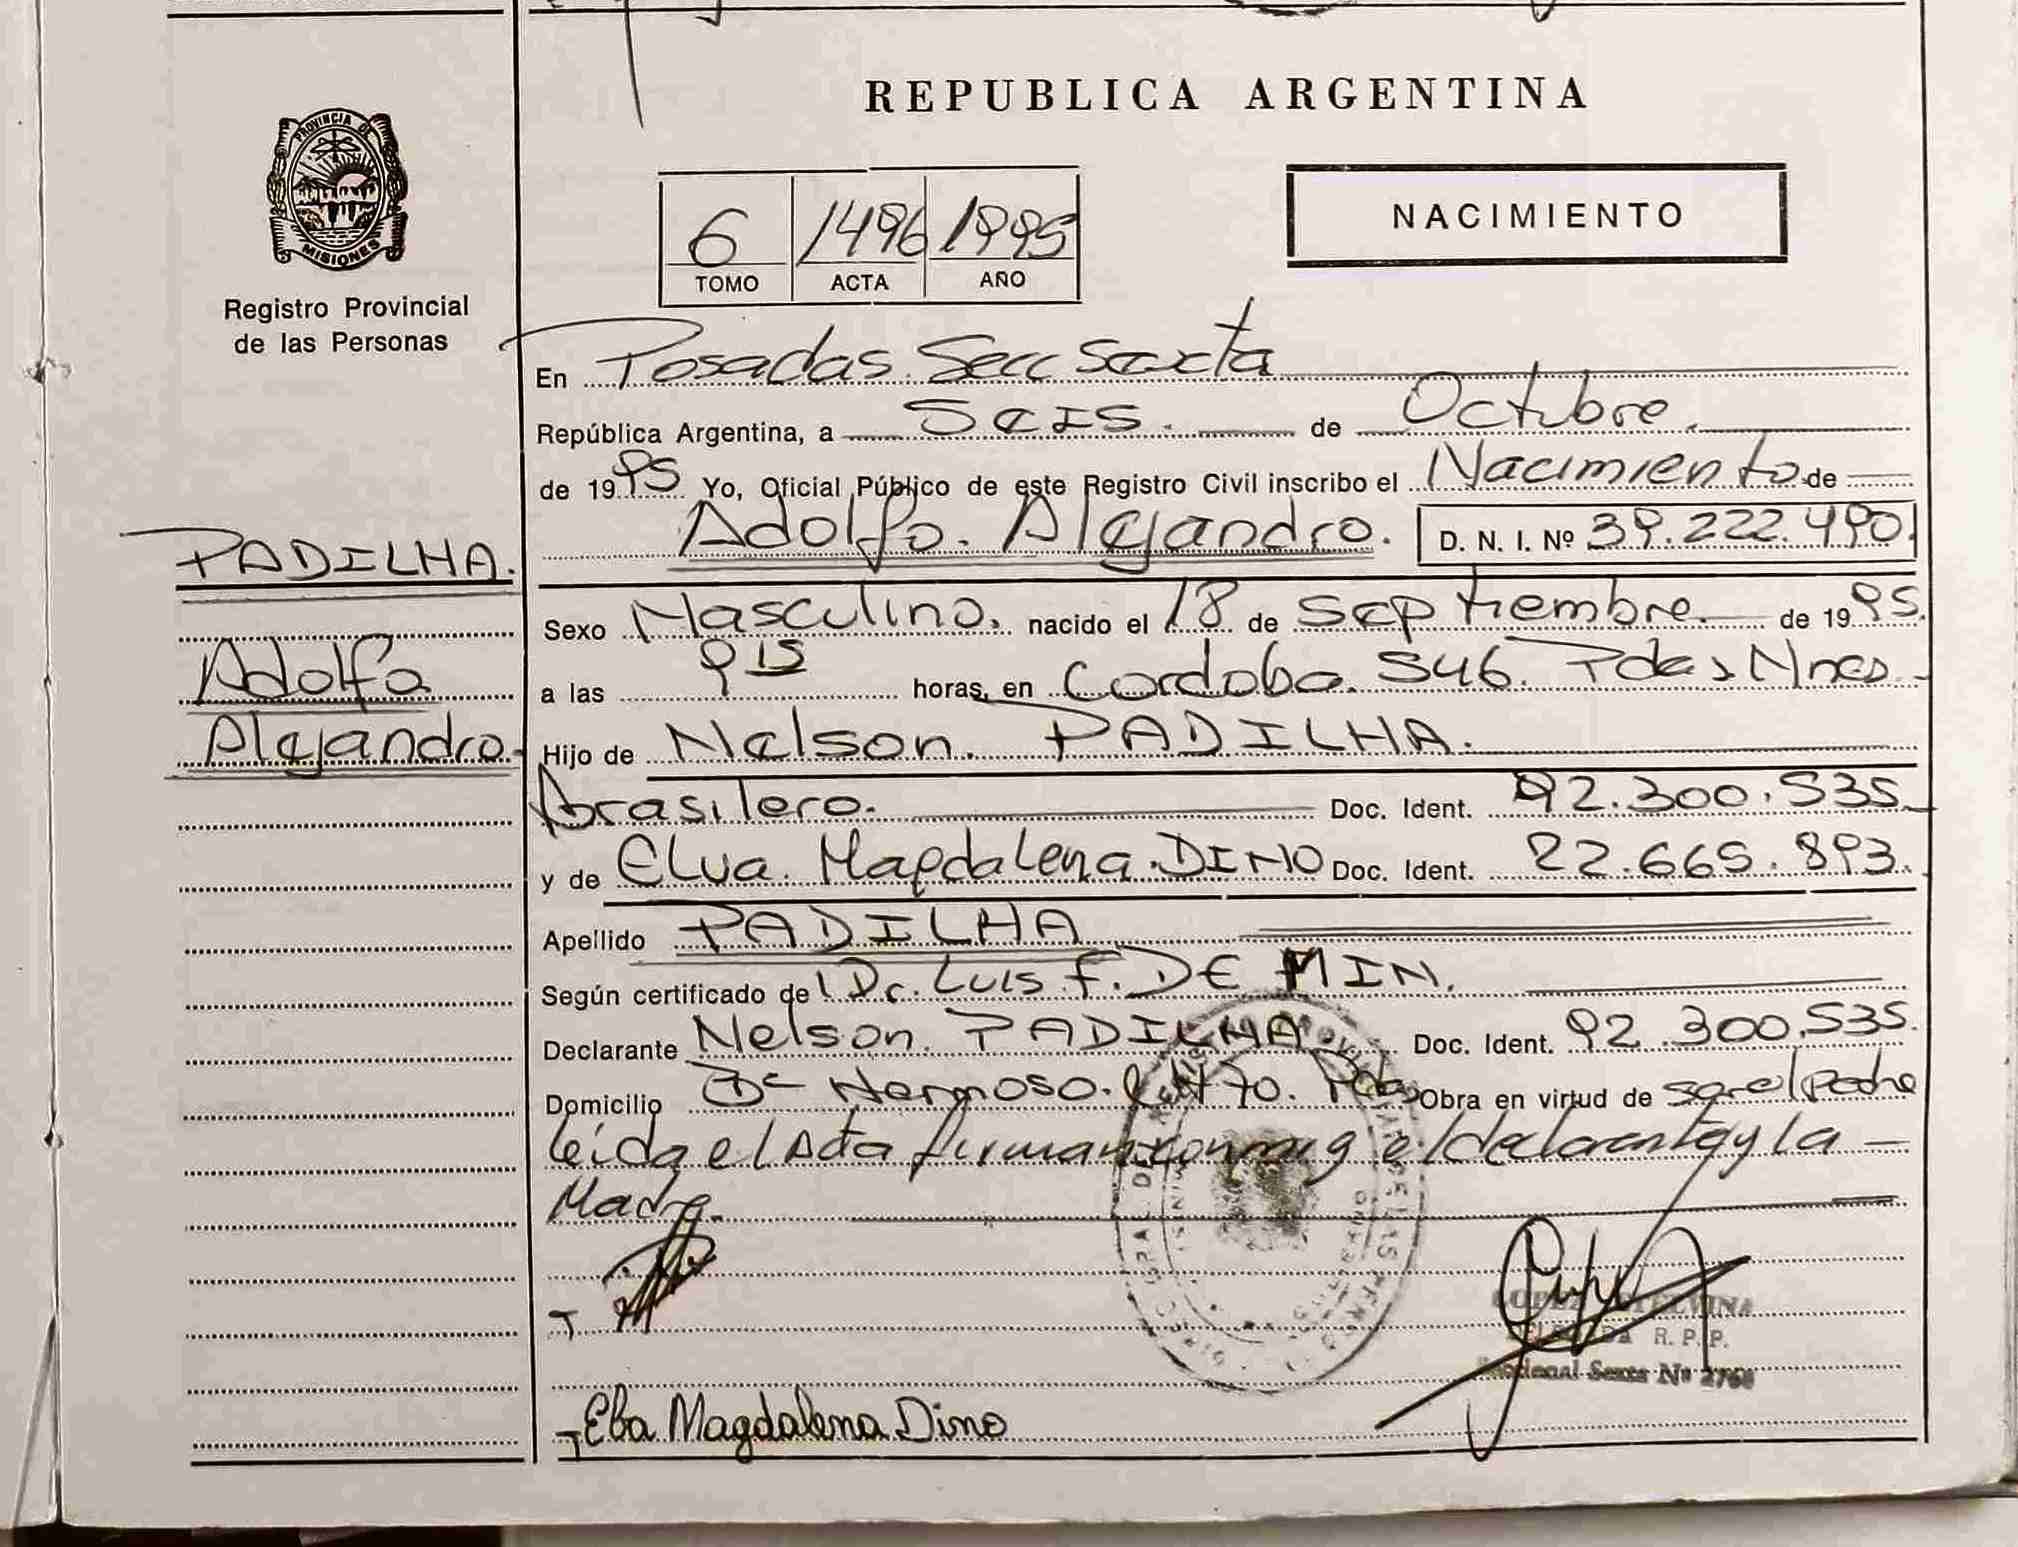 REPUBLICA ARGENTINA
PROVINCIA DE
MISIONES
Registro Provincial
de las Personas
6 1496 1995
TOMO ACTA AÑO
NACIMIENTO
En Posadas Secc Sexta
República Argentina, a Seis. de Octubre.
de 1995 Yo, Oficial Público de este Registro Civil inscribo el Nacimiento de
Adolfo. Alejandro. D. N. I. Nº 39.222.490.
PADILHA.
Adolfo
Alejandro.
Sexo Masculino. nacido el 18 de Septiembre de 1995.
a las 9 15 horas, en Cordoba. 546. Pdas Mnes.
Hijo de Nelson. PADILHA.
Brasilero. Doc. Ident. 92.300.535
y de Elva. Magdalena. DINO Doc. Ident. 22.665.893.
Apellido PADILHA
Según certificado de Dr. Luis F. DE MIN.
Declarante Nelson. PADILHA Doc. Ident. 92.300.535.
Domicilio Bº Hermoso. 70. Pdas Obra en virtud de ser el padre
leida el Acta firman conmigo el declarante y la
Madre.
Elba Magdalena Dino
R. P. P.